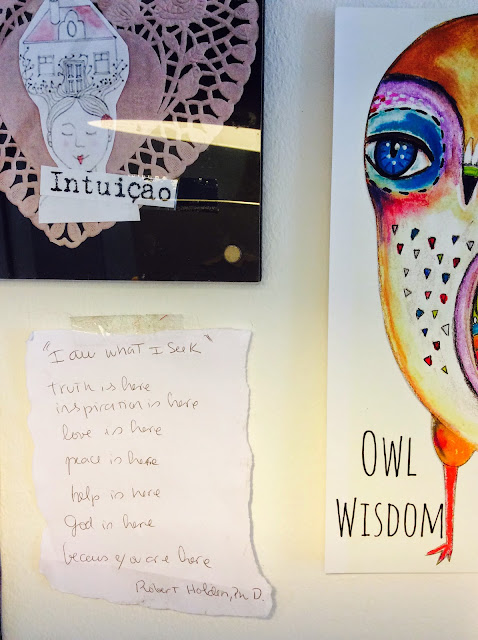 Intuição
"I am what I seek"
truth is here
inspiration is here
love is here
peace is here
help is here
god is here
becaus you are here
Robert Holden, Ph D.
OWL
WISDOM